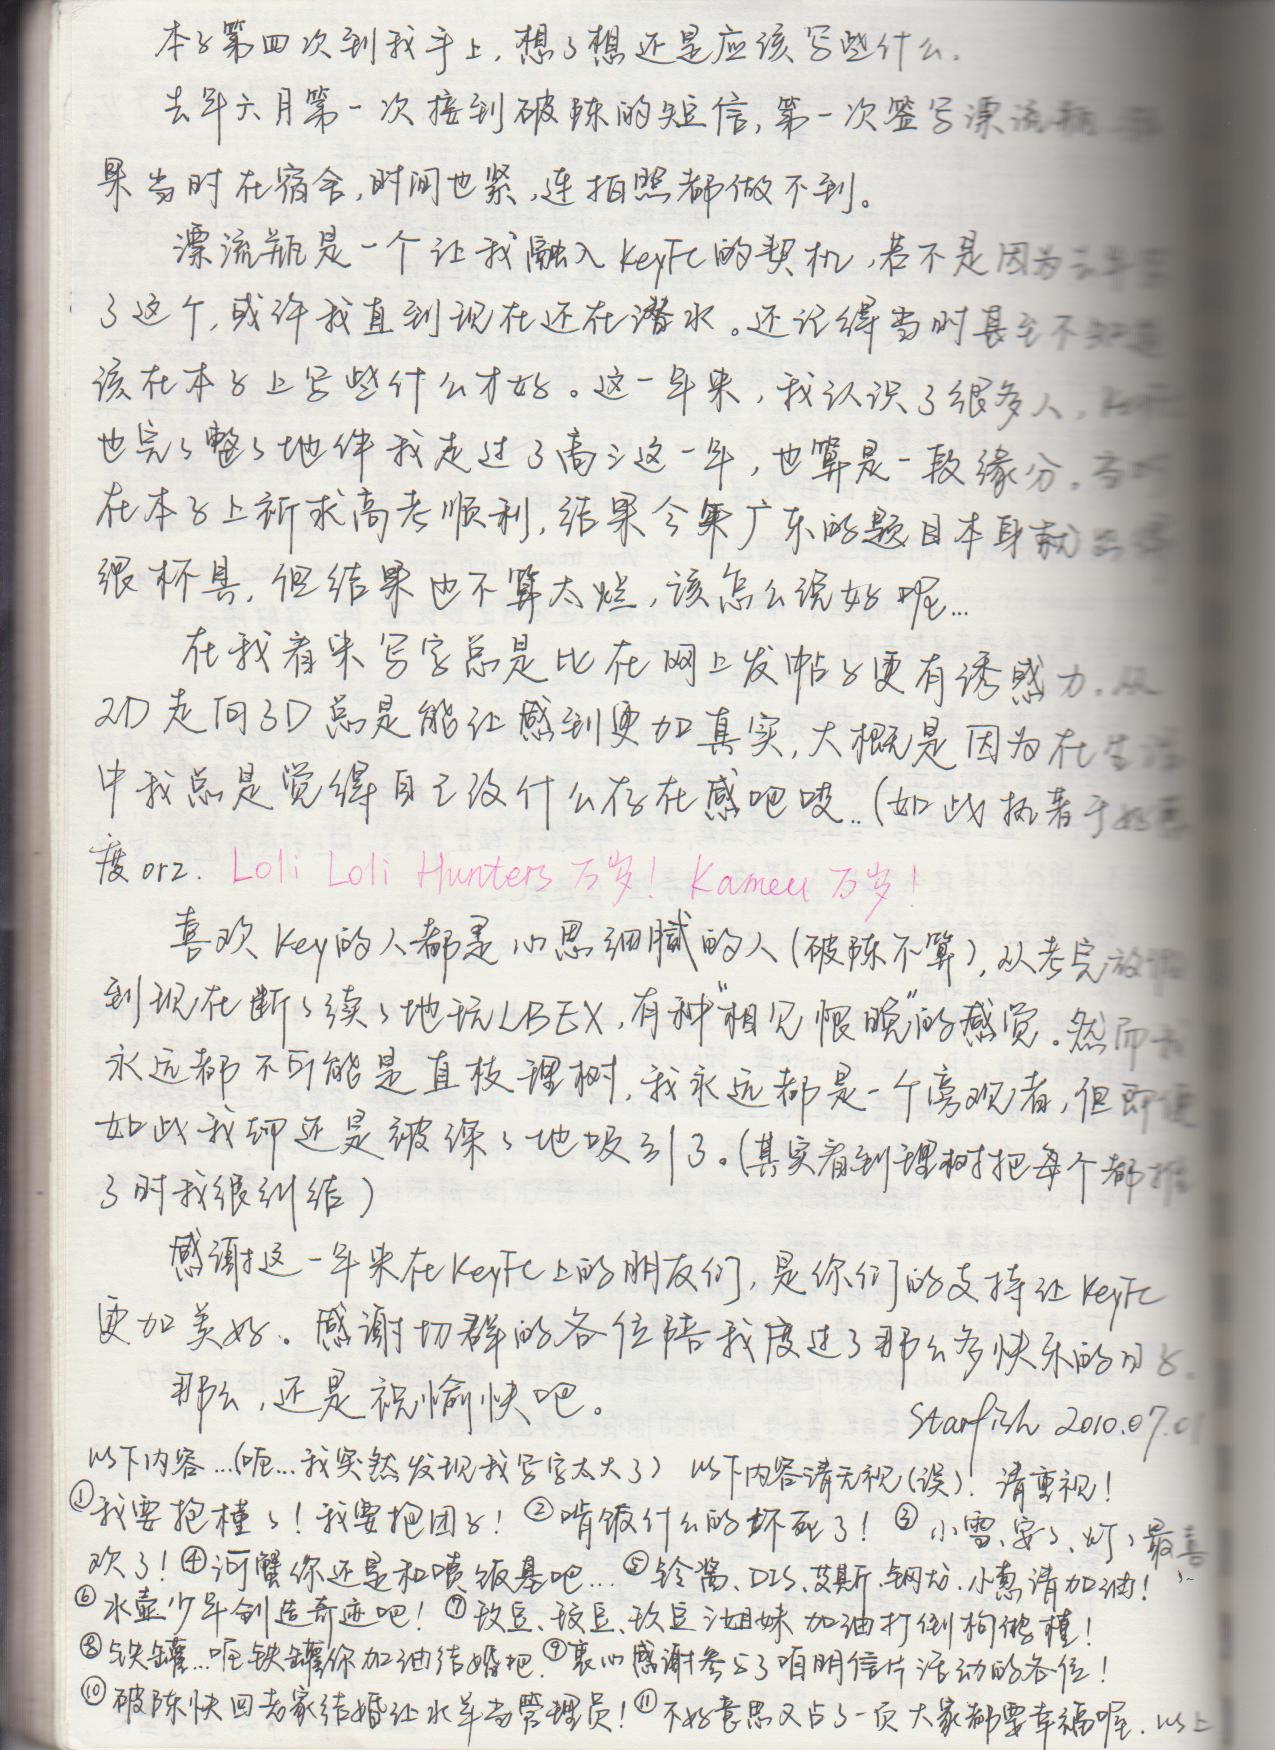 本子第四次到我手上，想了想还是应该写些什么。
去年六月第一次接到破陈的短信，第一次签写漂流瓶
果当时在宿舍，时间也紧，连拍照都做不到。
漂流瓶是一个让我融入KeyFC的契机，若不是因为去年
了这个，或许我直到现在还在潜水。还记得当时甚至不知道
该在本子上写些什么才好。这一年来，我认识了很多人，KeyFC
也完完整整地伴我走过了高三这一年，也算是一段缘分。当时
在本子上祈求高考顺利，结果今年广东的题目本身就
很杯具，但结果也不算太烂，该怎么说好呢…
在我看来写字总是比在网上发帖子更有诱惑力，从
2D走向3D总是能让感到更加真实，大概是因为在生活
中我总是觉得自己没什么存在感吧唉..（如此执着于好感
度orz. Loli Loli Hunters 万岁！ Kameu 万岁！
喜欢Key的人都是心思细腻的人（破陈不算），从考完放假
到现在断断续续地玩LBEX，有种“相见恨晚”的感觉。然而我
永远都不可能是直枝理树，我永远都是一个旁观者，但即便
如此我却还是被深深地吸引了。（其实看到理树把每个都推
了时我很纠结）
感谢这一年来在KeyFC上的朋友们，是你们的支持让KeyFC
更加美好。感谢切群的各位陪我度过了那么多快乐的日子。
那么，还是祝愉快吧。
Starfish 2010.07.01
以下内容…（呃…我突然发现我写字太大了） 以下内容请无视（误）！请重视！
①我要抱槿槿！我要抱团子！ ②啃饭什么的坏死了！ ③小雪、安安、灯灯最喜
欢了！④河蟹你还是和喷饭基吧… ⑤铃酱、DIS、艾斯、钢坊、小葱请加油！
⑥水壶少年创造奇迹吧！ ⑦玖豆、玖豆、玖豆三姐妹加油打倒构攸槿！
⑧铁罐…呃铁罐你加油结婚吧. ⑨衷心感谢参与了咱明信片活动的各位！
⑩破陈快回老家结婚让水羊当管理员！⑪不好意思又占了一页 大家都要幸福喔. 以上